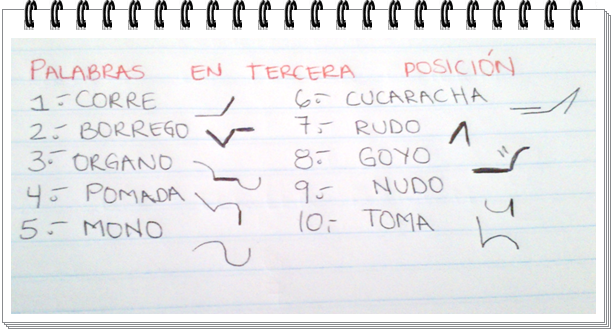 PALABRAS EN TERCERA POSICIÓN
1.- CORRE
2.- BORREGO
3.- ORGANO
4.- POMADA
5.- MONO
6.- CUCARACHA
7.- RUDO
8.- GOYO
9.- NUDO
10.- TOMA